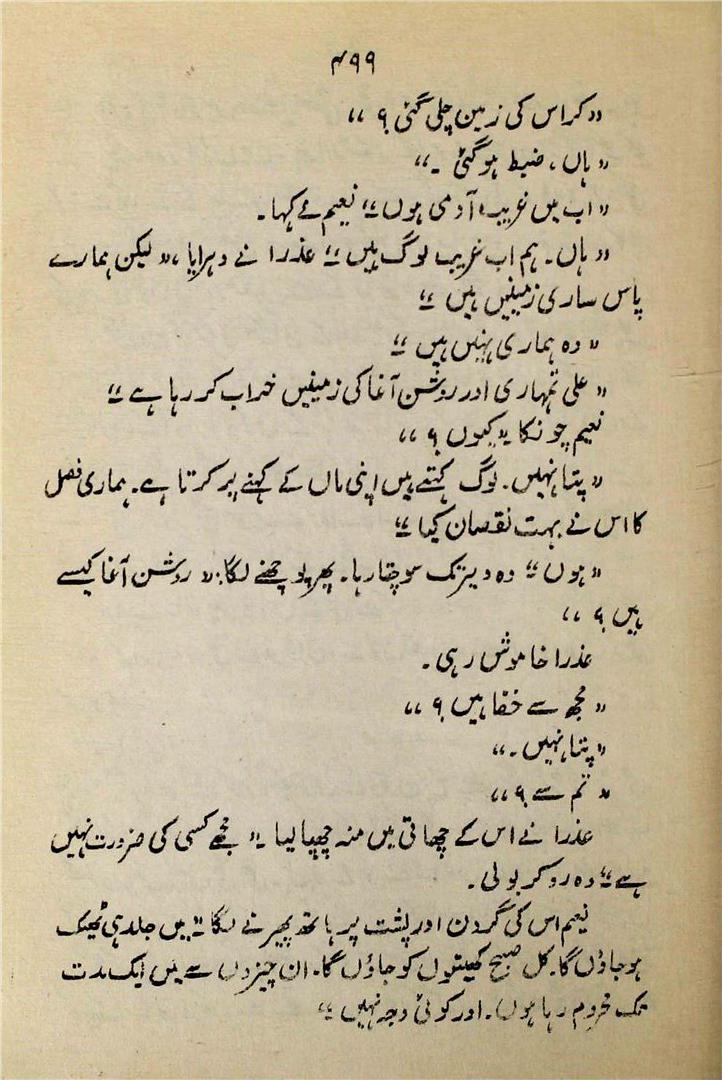 ۴۹۹
"کراس کی زمین چلی گئی؟"
"ہاں، ضبط ہو گئی۔"
"اب میں غریب آدمی ہوں" نعیم نے کہا۔
"ہاں۔ ہم اب غریب لوگ ہیں" عذرا نے دہرایا، "لیکن ہمارے
پاس ساری زمینیں ہیں"
"وہ ہماری نہیں ہیں"
"علی تمہاری اور روشن آغا کی زمینیں خراب کر رہا ہے"
نعیم چونکا "کیوں؟"
"پتا نہیں۔ لوگ کہتے ہیں اپنی ماں کے کہنے پر کرتا ہے۔ ہماری فصل
کا اس نے بہت نقصان کیا"
"ہوں" وہ دیر تک سوچتا رہا۔ پھر پوچھنے لگا: "روشن آغا کیسے
ہیں؟"
عذرا خاموش رہی۔
"مجھ سے خفا ہیں؟"
"پتا نہیں۔"
"تم سے؟"
عذرا نے اس کے چھاتی میں منہ چھپا لیا "مجھے کسی کی ضرورت نہیں
ہے" وہ رو کر بولی۔
نعیم اس کی گردن اور پشت پر ہاتھ پھیرنے لگا "میں جلد ہی ٹھیک
ہو جاؤں گا۔ کل صبح کھیتوں کو جاؤں گا۔ ان چیزوں سے میں ایک مدت
تک محروم رہا ہوں۔ اور کوئی وجہ نہیں"